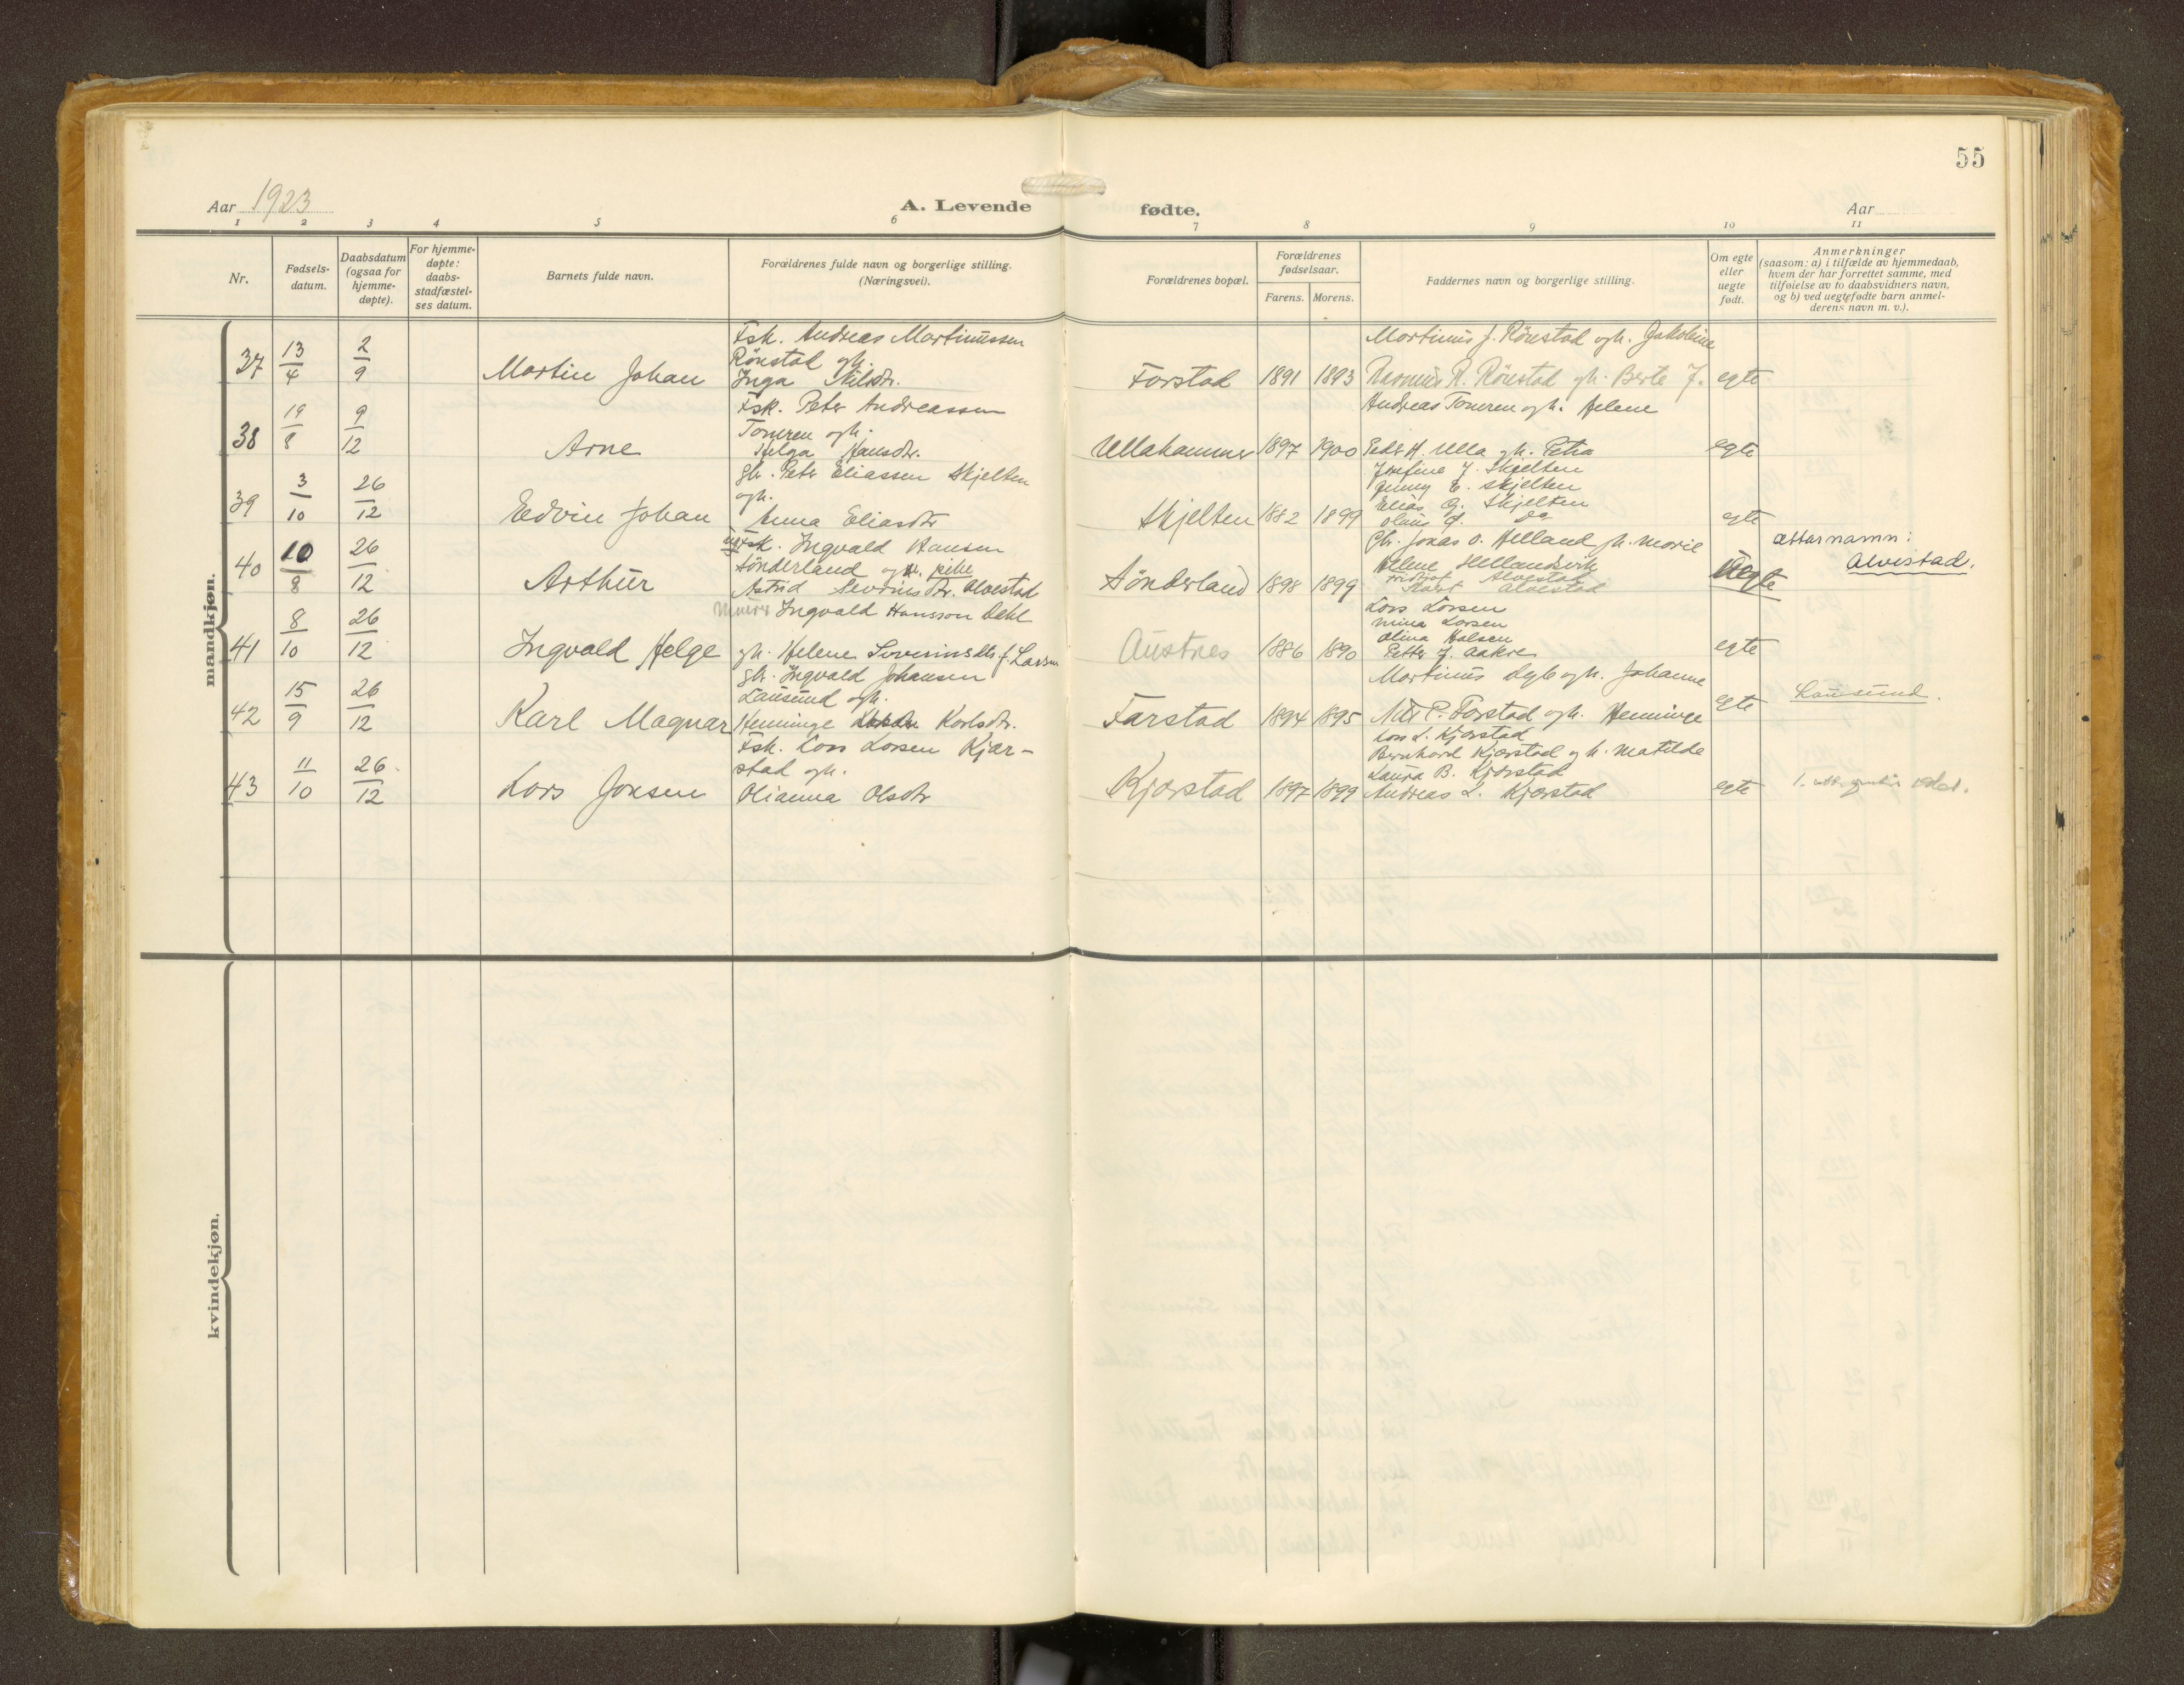 55
Aar 1923
A. Levende fødte.
Aar
1 2 3 4 5 6 7 8 9 10 11
Nr.
Fødsels-
datum.
Daabsdatum
(ogsaa for
hjemme-
døpte).
For hjemme-
døpte:
daabs-
stadfæstel-
ses datum.
Barnets fulde navn.
Forældrenes fulde navn og borgerlige stilling.
(Næringsvei).
Forældrenes bopæl.
Forældrenes
fødselsaar.
Farens. Morens.
Faddernes navn og borgerlige stilling.
Om egte
eller
uegte
født.
Anmerkninger
(saasom: a) i tilfælde av hjemmedaab,
hvem der har forrettet samme, med
tilføielse av to daabsvidners navn,
og b) ved uegtefødte barn anmel-
derens navn m. v.).
mandkjøn.
37 13/4 2/9 Martin Johan
Fsk. Andreas Martinussen
Rönstad og h.
Inga Nilsdr.
Farstad 1891 1893
Martinus J. Rönstad og h. Jakobine
Rasmus R. Rönstad og h. Berte J.
egte
38 19/8 9/12 Arne
Fsk. Peter Andreassen
Toneren og h.
Helga Hansdr.
Ullahammer 1897 1900
Andreas Toneren og h. Helene
Peder H. Ulla og h. Petra
egte
39 3/10 26/12 Edvin Johan
gbr. Peter Eliassen Skjelten
og h.
Anna Eliasdr
Skjelten 1882 1899
Josefine J. Skjelten
Jenny E. Skjelten
Elias G. Skjelten
Olaus do
egte
40 10/8 26/12 Arthur
Fsk. Ingvald Hansen
Sönderland og pike
Astrid Sevrinsdr. Alvestad
Sönderland 1898 1899
Gbr. Jonas O. Helland og h. Marie
Helene Hellandsvik
Fridtjof Alvestad
Alvestad
Uegte
ættarnamn:
Alvestad.
41 8/10 26/12 Ingvald Helge
Murer Ingvald Hansson Dahl
og h. Helene Severinsdtr f. Larsen
Austnes 1886 1890
Lars Larsen
Mina Larsen
Olina Halsen
Petter J. Aakre
egte
42 15/9 26/12 Karl Magnar
gbr. Ingvald Johansen
Lausund og h.
Henninge Karlsdr.
Farstad 1894 1895
Martinus Dyb og h. Johanne
Nils P. Farstad og h. Henninge
egte
Lausund.
43 11/10 26/12 Lars Jonsen
Fsk. Lars Larsen Kjær-
stad og h.
Olianna Olsdr
Kjærstad 1897 1899
Lars L. Kjærstad
Bernhard Kjærstad og h. Matilde
Laura B. Kjærstad
Andreas L. Kjærstad
egte
kvindekjøn.